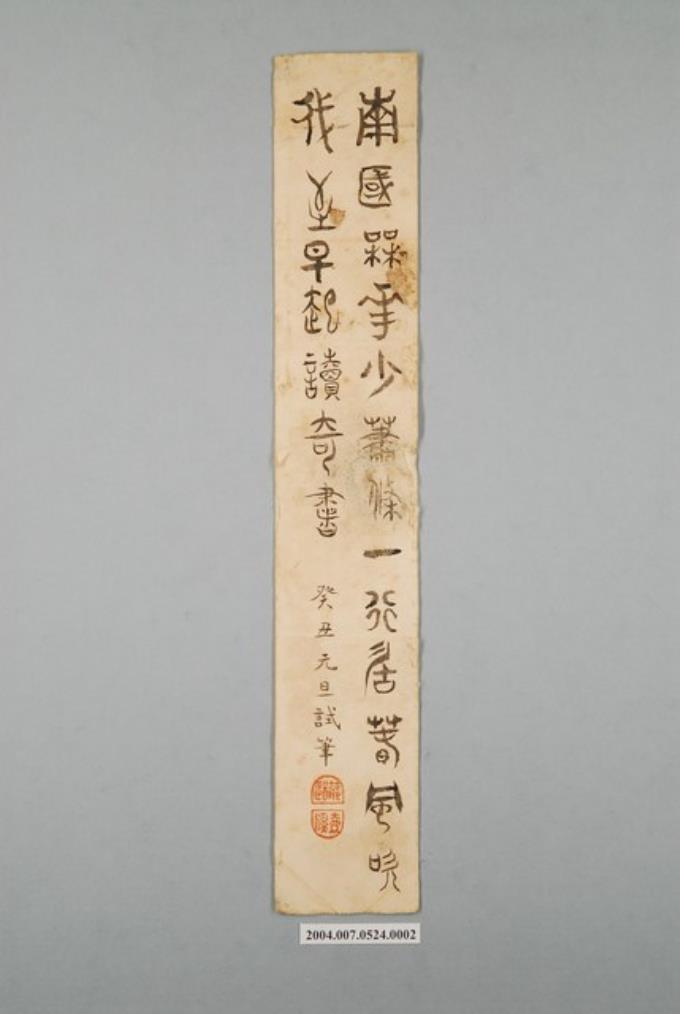 南國槑華少蕭條一行居春風吹
我至早起讀奇書
癸丑元旦試筆
2004.007.0524.0002